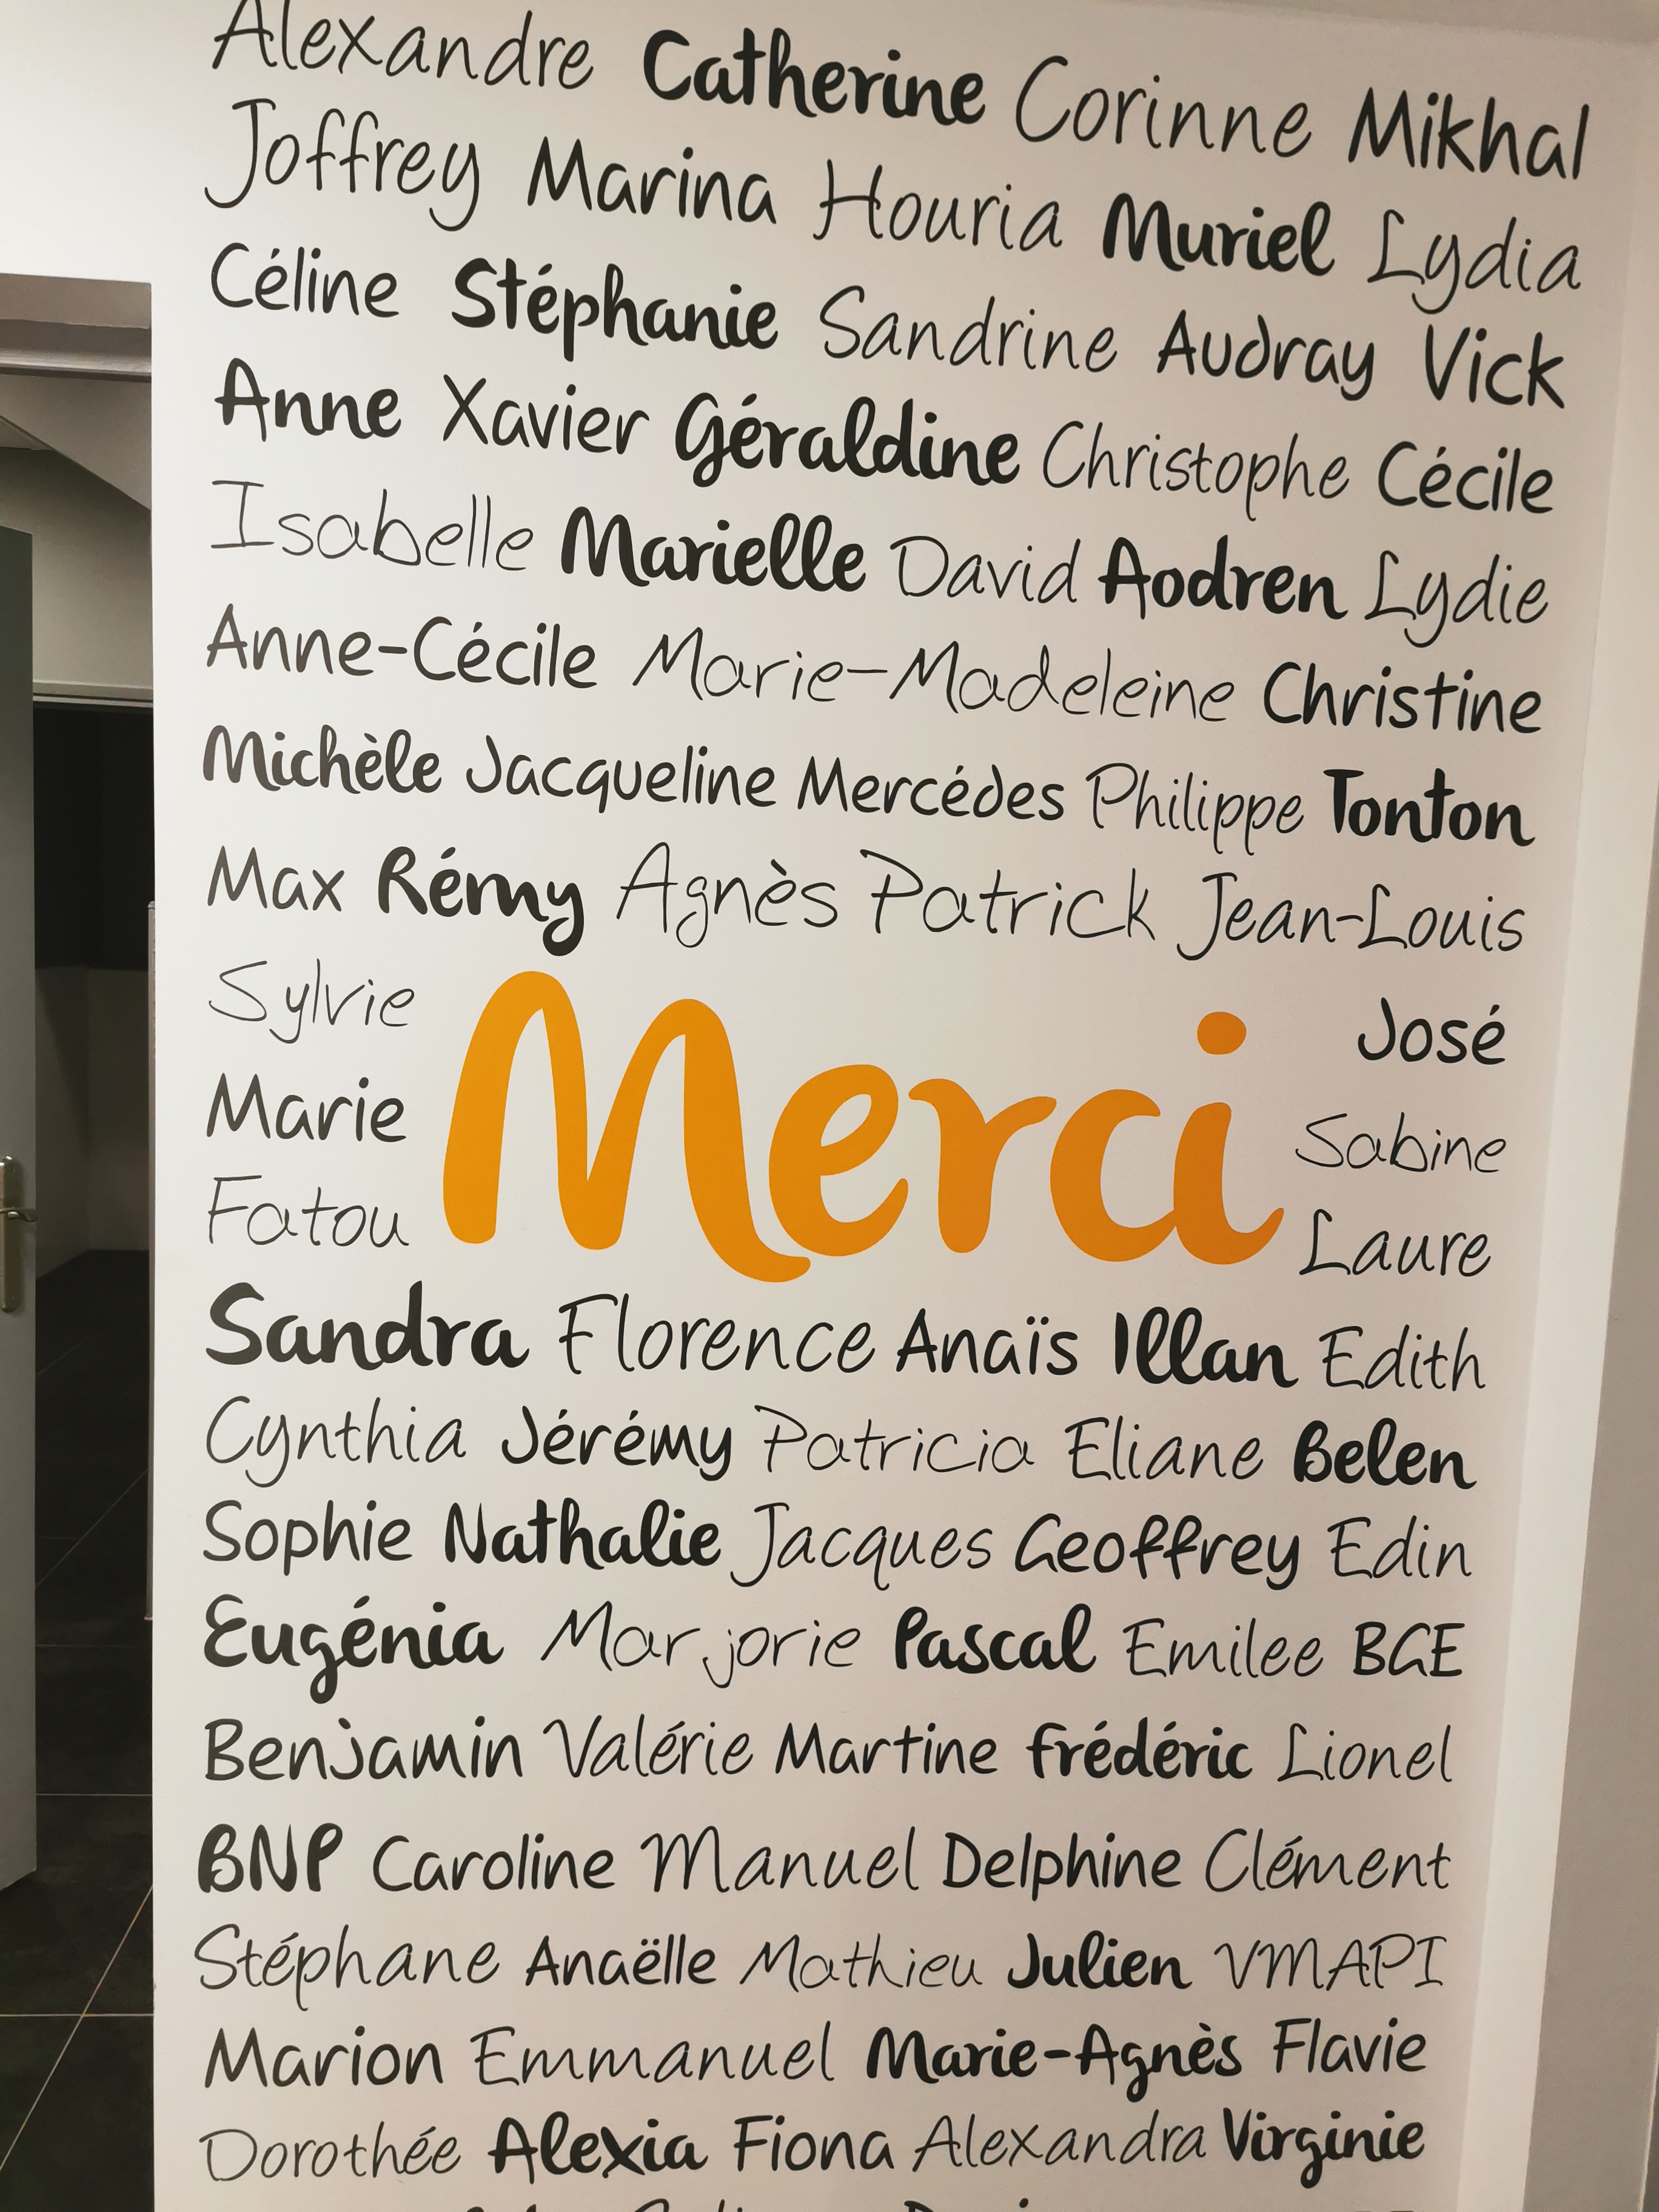 Alexandre Catherine Corinne Mikhal
Joffrey Marina Houria Muriel Lydia
Céline Stéphanie Sandrine Audray Vick
Anne Xavier Géraldine Christophe Cécile
Isabelle Marielle David Aodren Lydie
Anne-Cécile Marie-Madeleine Christine
Michèle Jacqueline Mercédes Philippe Tonton
Max Rémy Agnès Patrick Jean-Louis
Sylvie José
Marie Merci Sabine
Fatou Laure
Sandra Florence Anaïs Illan Edith
Cynthia Jérémy Patricia Eliane Belen
Sophie Nathalie Jacques Geoffrey Edin
Eugénia Marjorie Pascal Emilee BGE
Benjamin Valérie Martine Frédéric Lionel
BNP Caroline Manuel Delphine Clément
Stéphane Anaëlle Mathieu Julien VMAPI
Marion Emmanuel Marie-Agnès Flavie
Dorothée Alexia Fiona Alexandra Virginie